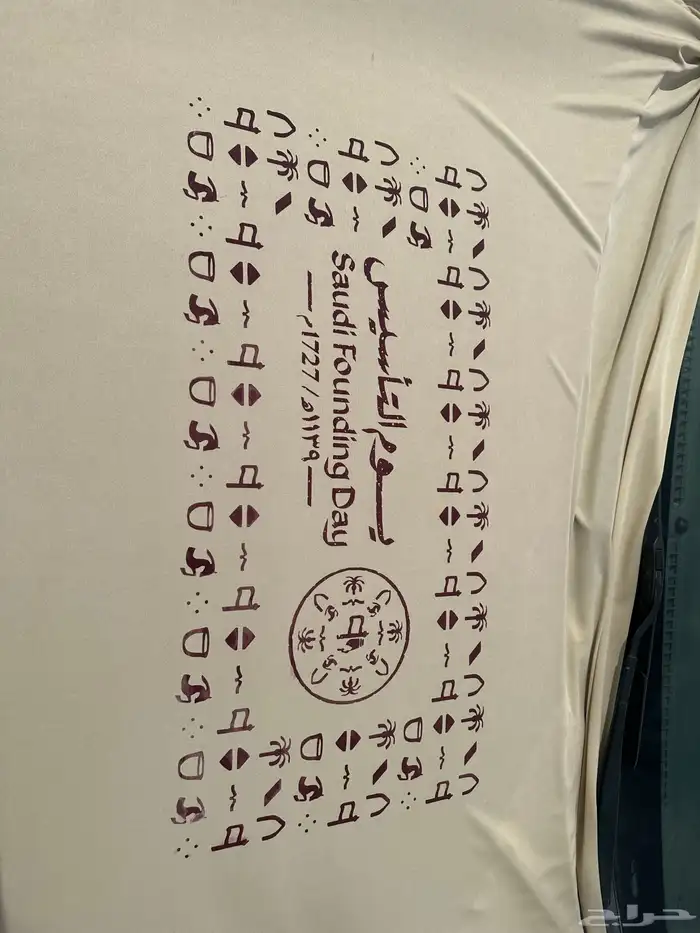 يوم التأسيس
Saudi Founding Day
١١٣٩هـ/1727م
حراج